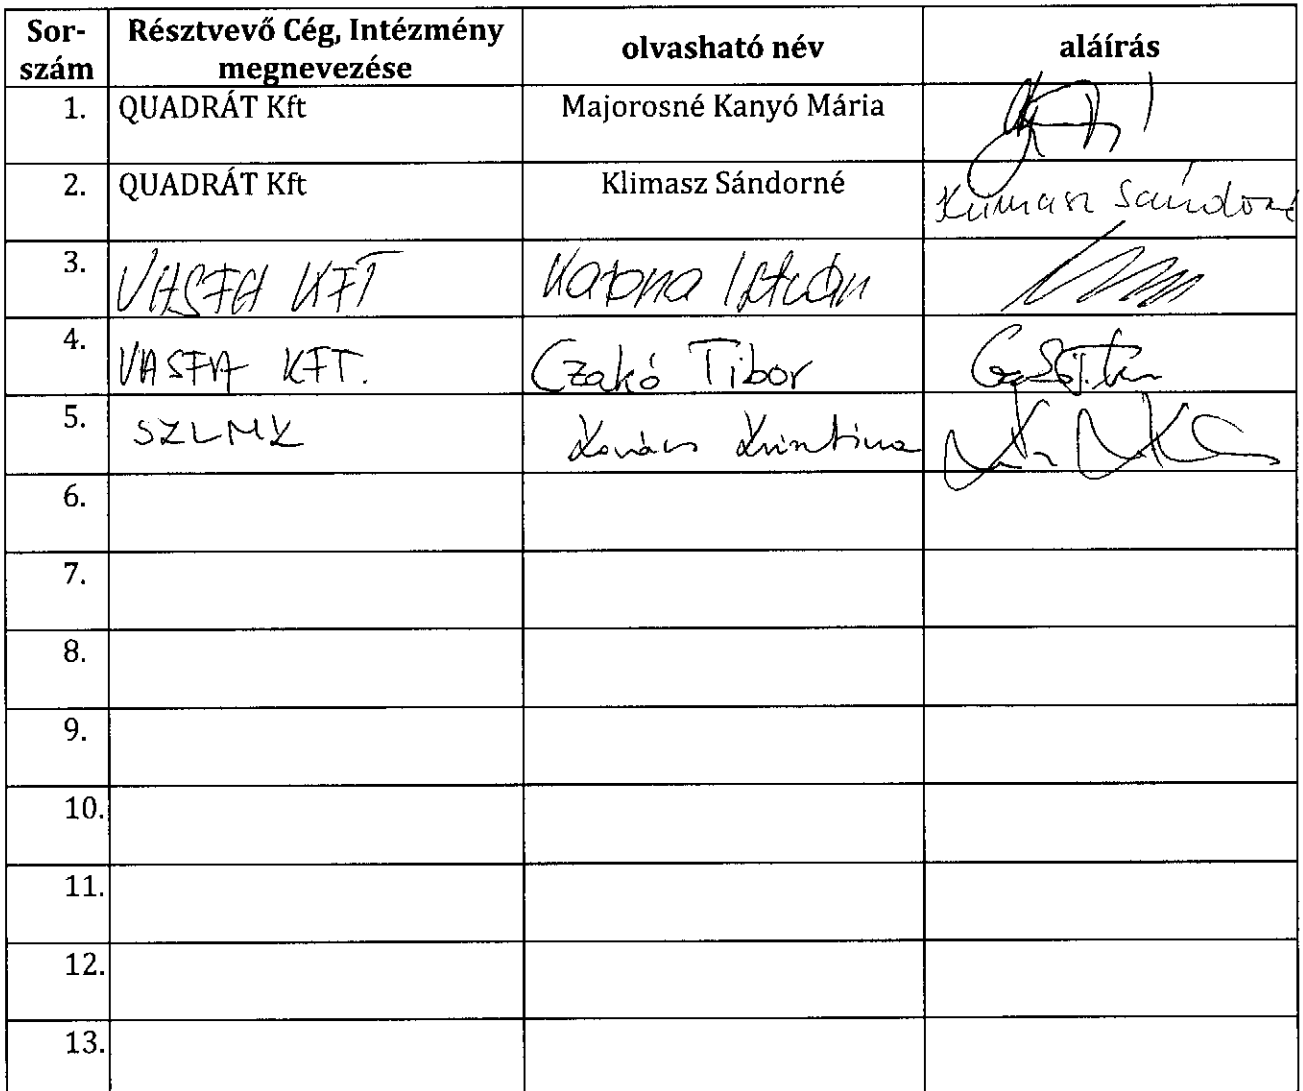 Sor-
szám
Résztvevő Cég, Intézmény
megnevezése
olvasható név
aláírás
1. QUADRÁT Kft Majorosné Kanyó Mária
2. QUADRÁT Kft Klimasz Sándorné Klimasz Sándorné
3. VASFA KFT István
4. VASFA KFT. Czakó Tibor
5. SZLMK Kovács Krisztina
6.
7.
8.
9.
10.
11.
12.
13.